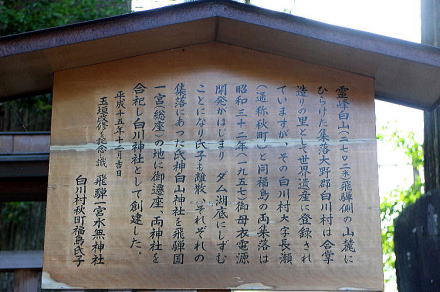 霊峰白山(二七〇二米)飛騨側の山麓に
ひらけた集落大野郡白川村は合掌
造りの里として世界遺産に登録され
ていますが、その白川村大字長瀬
(通称秋町)と同福島の両集落は
昭和三十二年(一九五七)御母衣電源
開発がはじまり ダム湖底にしずむ
ことになり氏子も離散、いそれぞれの
集落にあった氏神白山神社を飛騨国
一宮(総座)の地に御遷座 両神社を
合祀し白川神社として創建した。
平成十五年十二月吉日
玉垣改修を記念し識 飛騨一宮水無神社
白川村秋町福島氏子